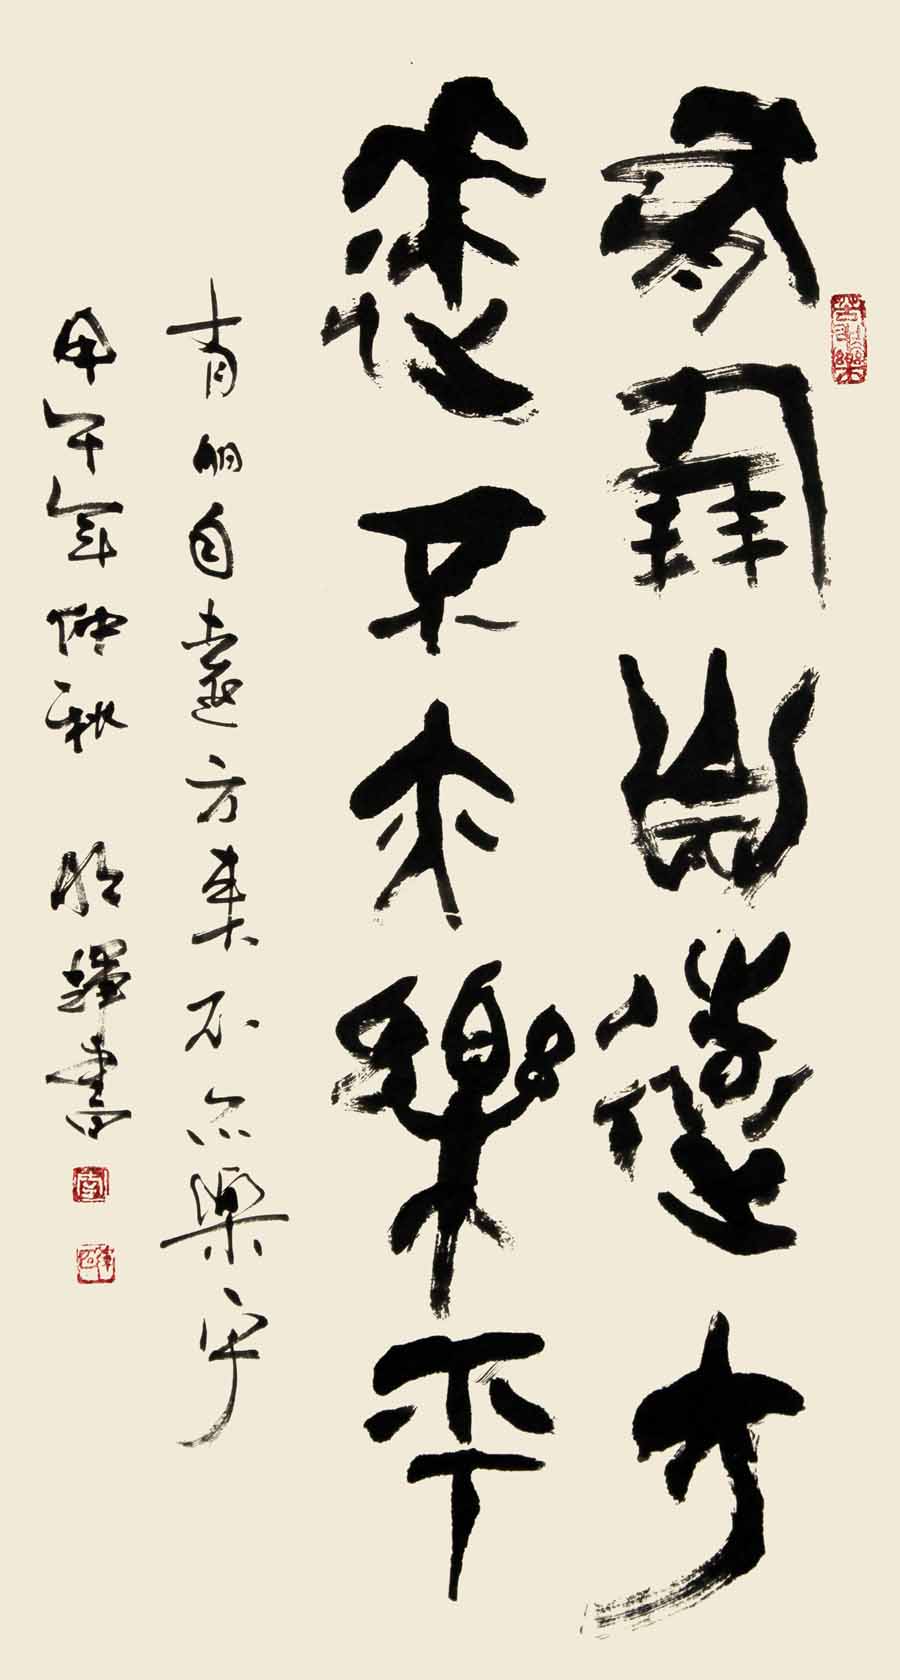 有朋自遠方
來不亦樂乎
有朋自遠方來不亦樂乎
甲午年仲秋 書